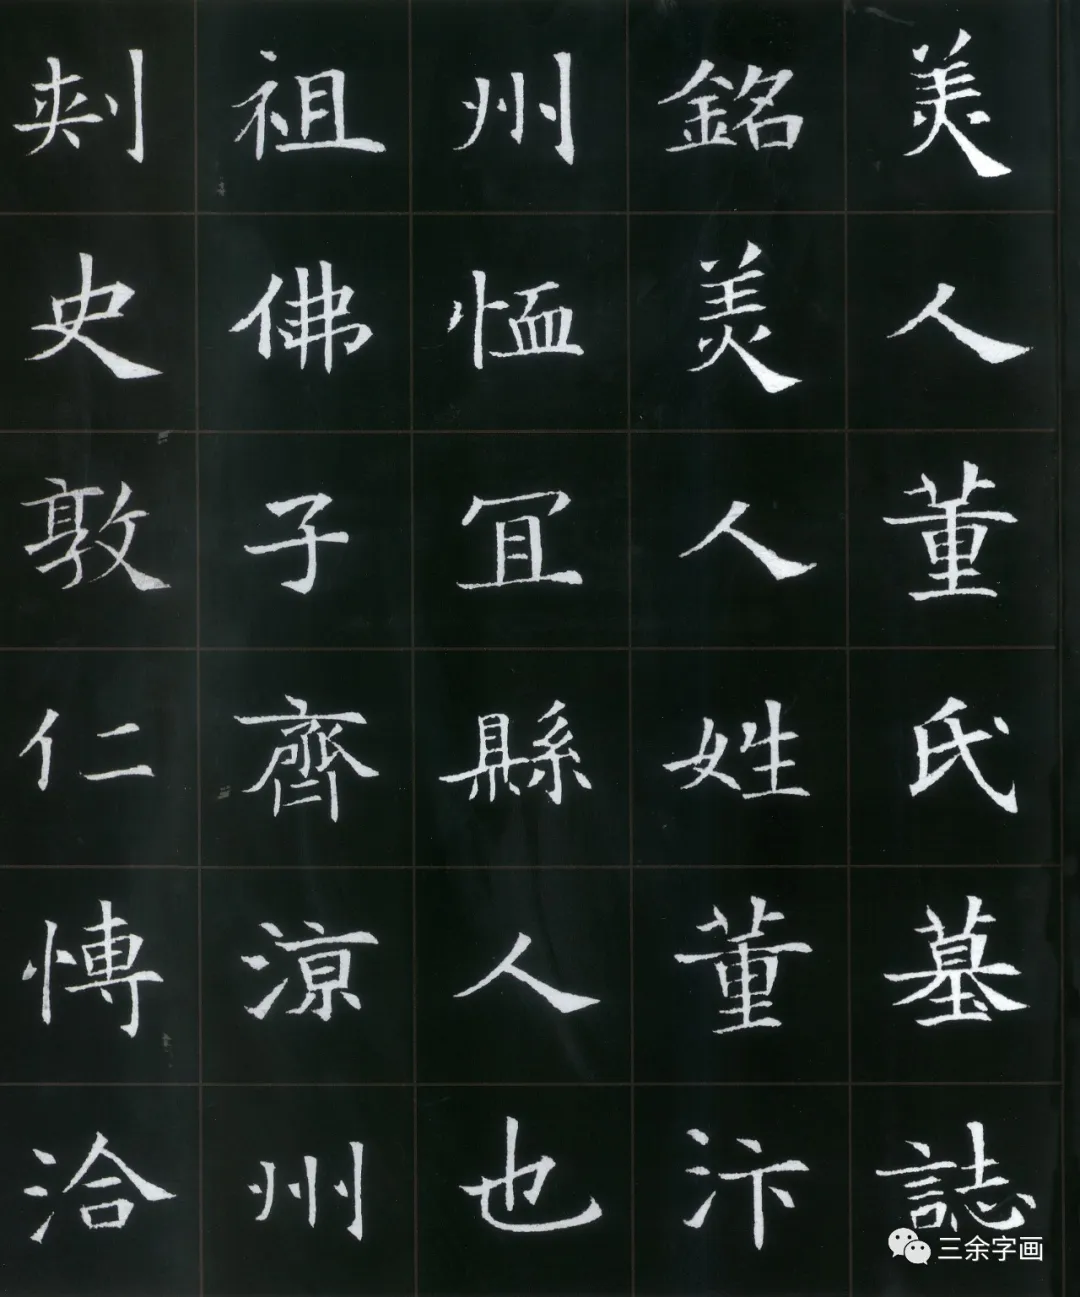 美人董氏墓誌
銘美人姓董汴
州恤冝縣人也
祖佛子齊涼州
刾史敦仁愽洽
三余字画